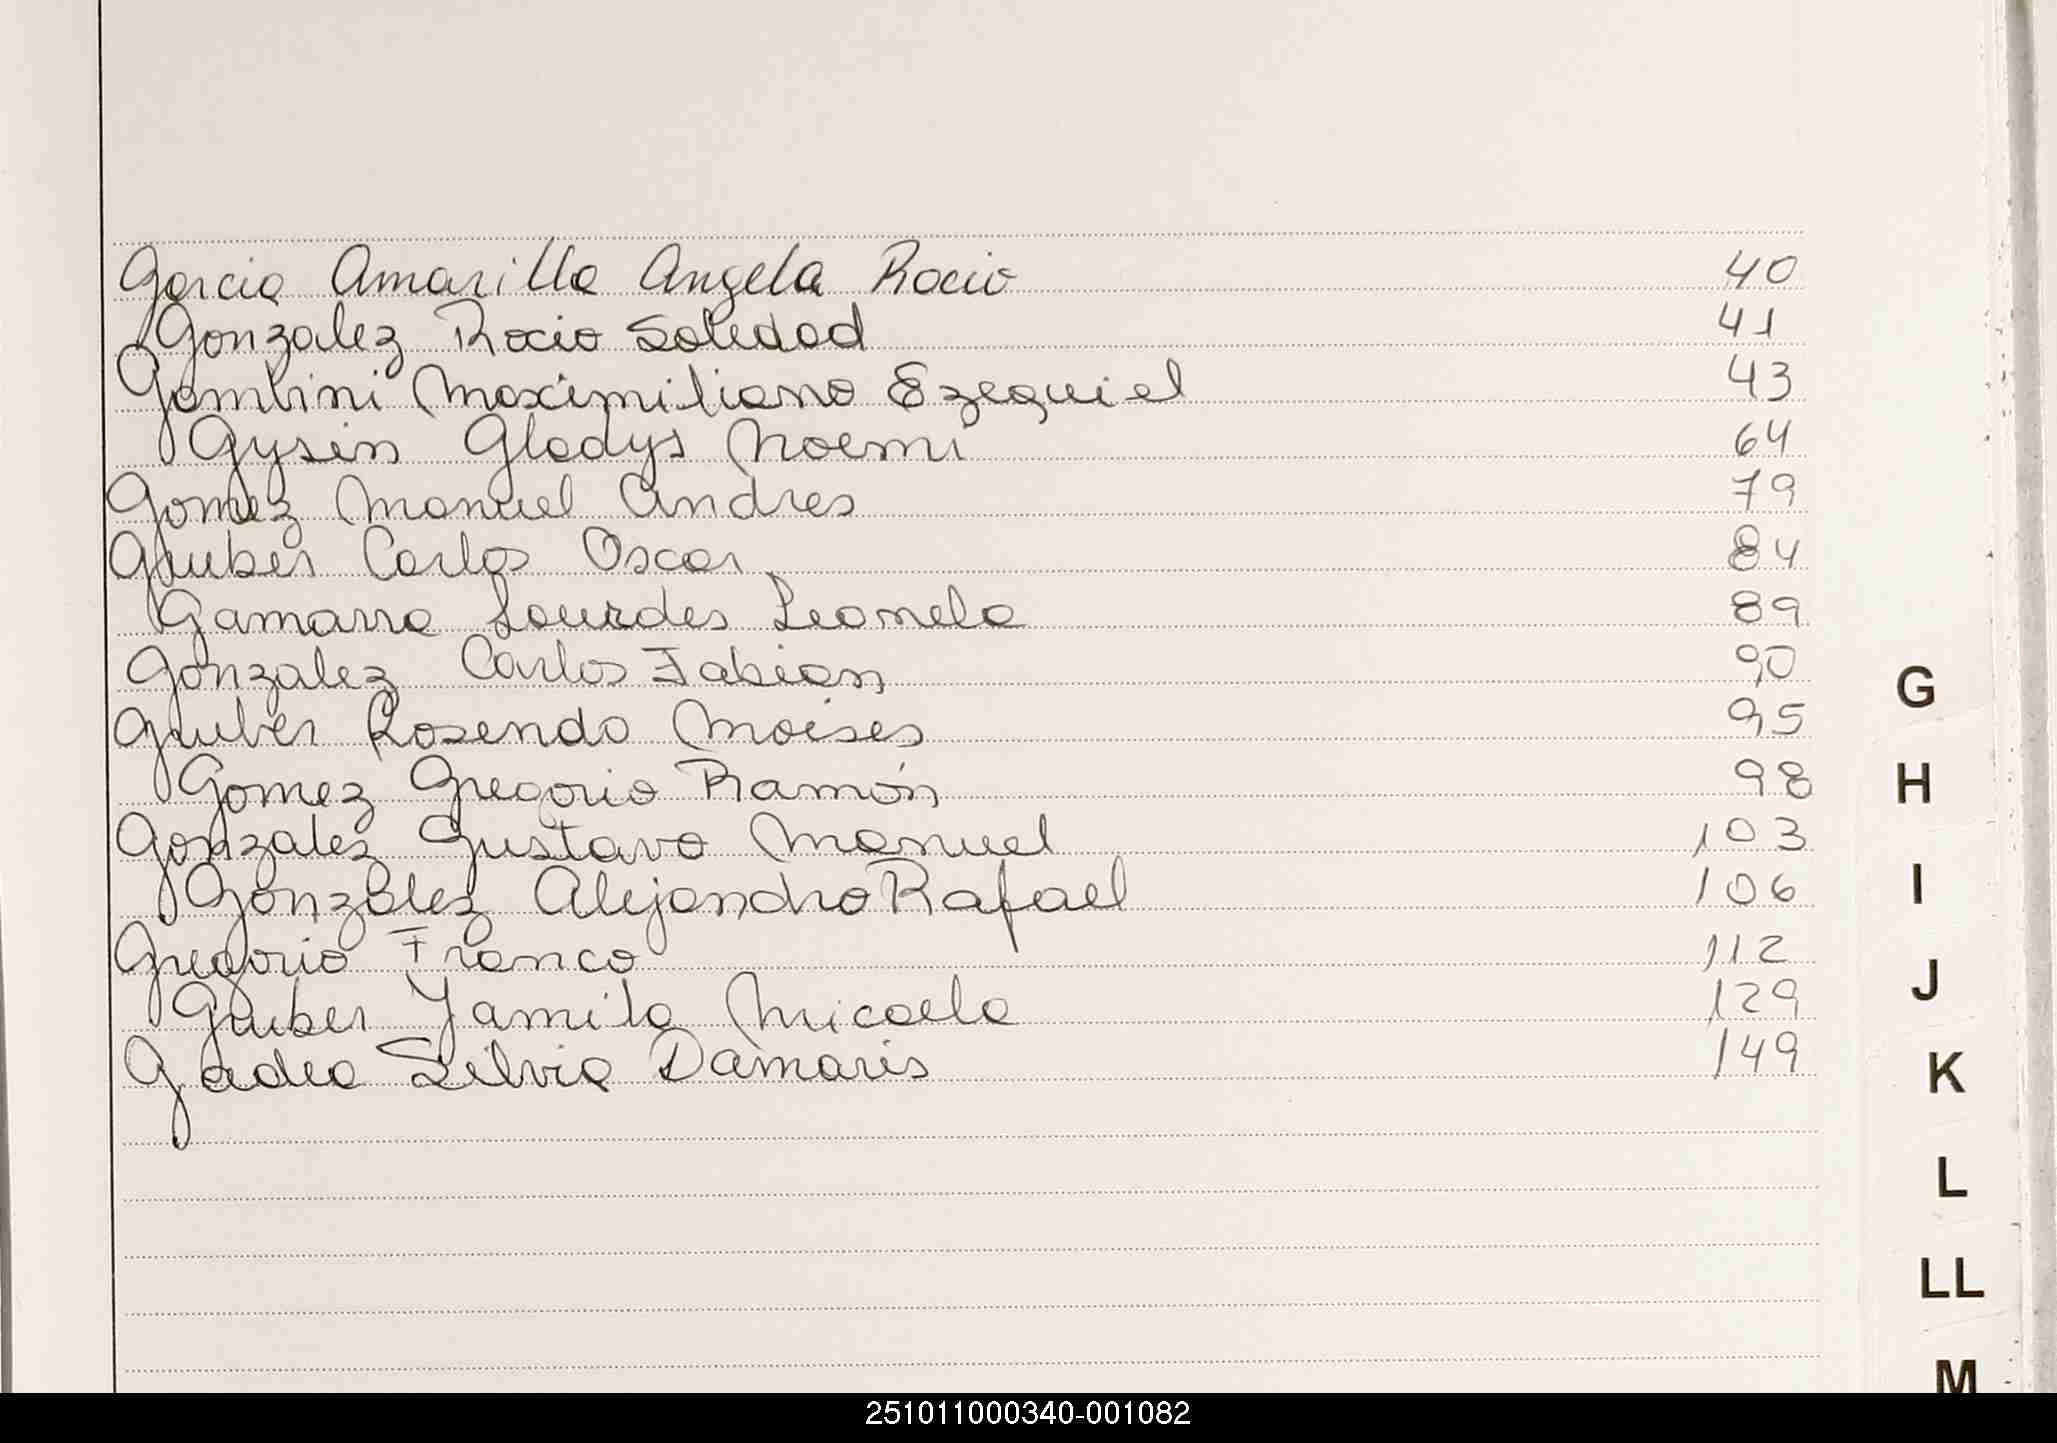 Garcia Amarilla Angela Rocio 40
Gonzalez Rocio Soledad 41
Gambini Maximiliano Ezequiel 43
Gysin Gladys Noemi 64
Gomez Manuel Andres 79
Gruber Carlos Oscar 84
Gamarra Lourdes Leonela 89
Gonzalez Carlos Fabian 90
Gruber Rosendo Moises 95
Gomez Gregorio Ramón 98
Gonzalez Gustavo Manuel 103
González Alejandro Rafael 106
Gregorio Franco 112
Gruber Yamila Micaela 129
Gadea Silvia Damaris 149
G
H
I
J
K
L
LL
M
251011000340-001082